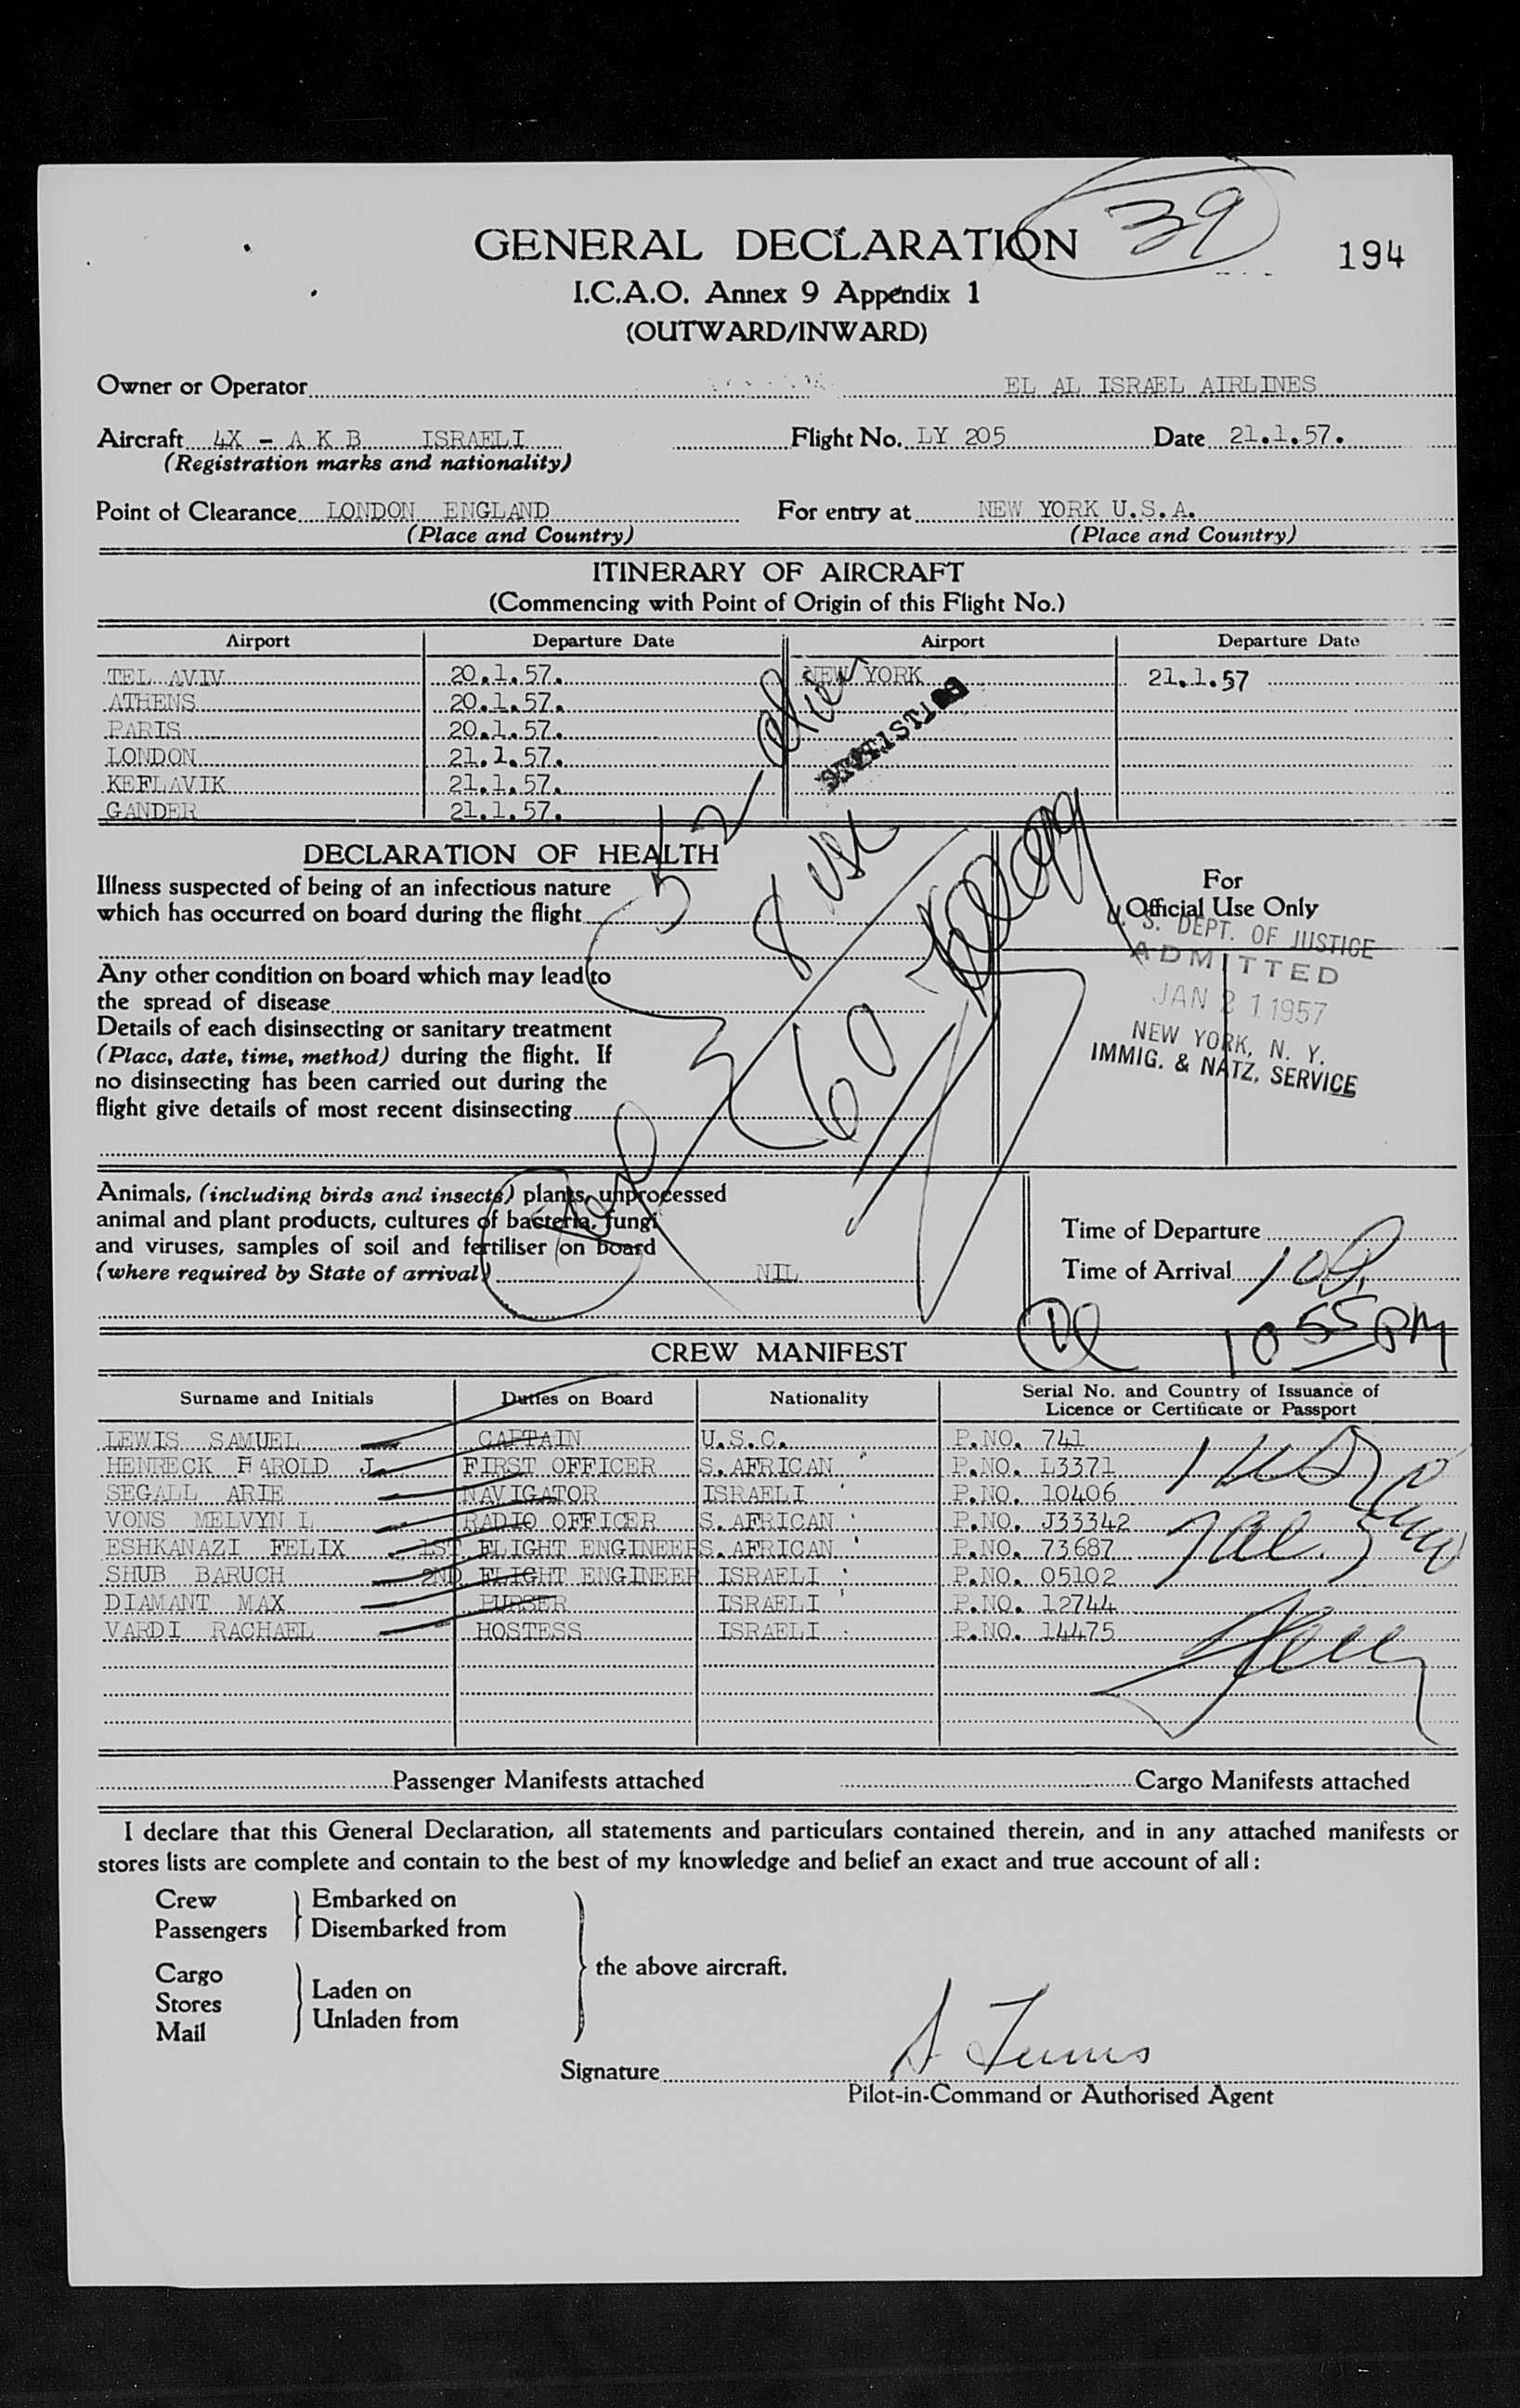 39
194
GENERAL DECLARATION
I.C.A.O. Annex 9 Appendix 1
(OUTWARD/INWARD)
Owner or Operator EL AL ISRAEL AIRLINES
Aircraft 4X - A K B ISRAELI Flight No. LY 205 Date 21.1.57.
(Registration marks and nationality)
Point of Clearance LONDON ENGLAND For entry at NEW YORK U.S.A.
(Place and Country) (Place and Country)
ITINERARY OF AIRCRAFT
(Commencing with Point of Origin of this Flight No.)
Airport Departure Date Airport Departure Date
TEL AVIV 20.1.57. NEW YORK 21.1.57
ATHENS 20.1.57.
PARIS 20.1.57.
LONDON 21.1.57.
KEFLAVIK 21.1.57.
GANDER 21.1.57.
52 - alien
8 usc
60
DECLARATION OF HEALTH
Illness suspected of being of an infectious nature
which has occurred on board during the flight
Any other condition on board which may lead to
the spread of disease
Details of each disinsecting or sanitary treatment
(Place, date, time, method) during the flight. If
no disinsecting has been carried out during the
flight give details of most recent disinsecting
For
Official Use Only
U. S. DEPT. OF JUSTICE
ADMITTED
JAN 21 1957
NEW YORK, N. Y.
IMMIG. & NATZ. SERVICE
Animals, (including birds and insects) plants, unprocessed
animal and plant products, cultures of bacteria, fungi
and viruses, samples of soil and fertiliser on board
(where required by State of arrival) NIL
Time of Departure
Time of Arrival
10 55 PM
CREW MANIFEST
Surname and Initials Duties on Board Nationality Serial No. and Country of Issuance of
Licence or Certificate or Passport
LEWIS SAMUEL CAPTAIN U.S.C. P.NO. 741
HENRECK HAROLD J. FIRST OFFICER S.AFRICAN P.NO. L3371
SEGALL ARIE NAVIGATOR ISRAELI P.NO. 10406
VONS MELVYN L RADIO OFFICER S.AFRICAN P.NO. J33342
ESHKANAZI FELIX 1ST FLIGHT ENGINEER S.AFRICAN P.NO. 73687
SHUB BARUCH 2ND FLIGHT ENGINEER ISRAELI P.NO. 05102
DIAMANT MAX PURSER ISRAELI P.NO. 12744
VARDI RACHAEL HOSTESS ISRAELI P.NO. 14475
Passenger Manifests attached Cargo Manifests attached
I declare that this General Declaration, all statements and particulars contained therein, and in any attached manifests or
stores lists are complete and contain to the best of my knowledge and belief an exact and true account of all :
Crew Embarked on
Passengers Disembarked from
the above aircraft.
Cargo Laden on
Stores Unladen from
Mail
Signature
Pilot-in-Command or Authorised Agent